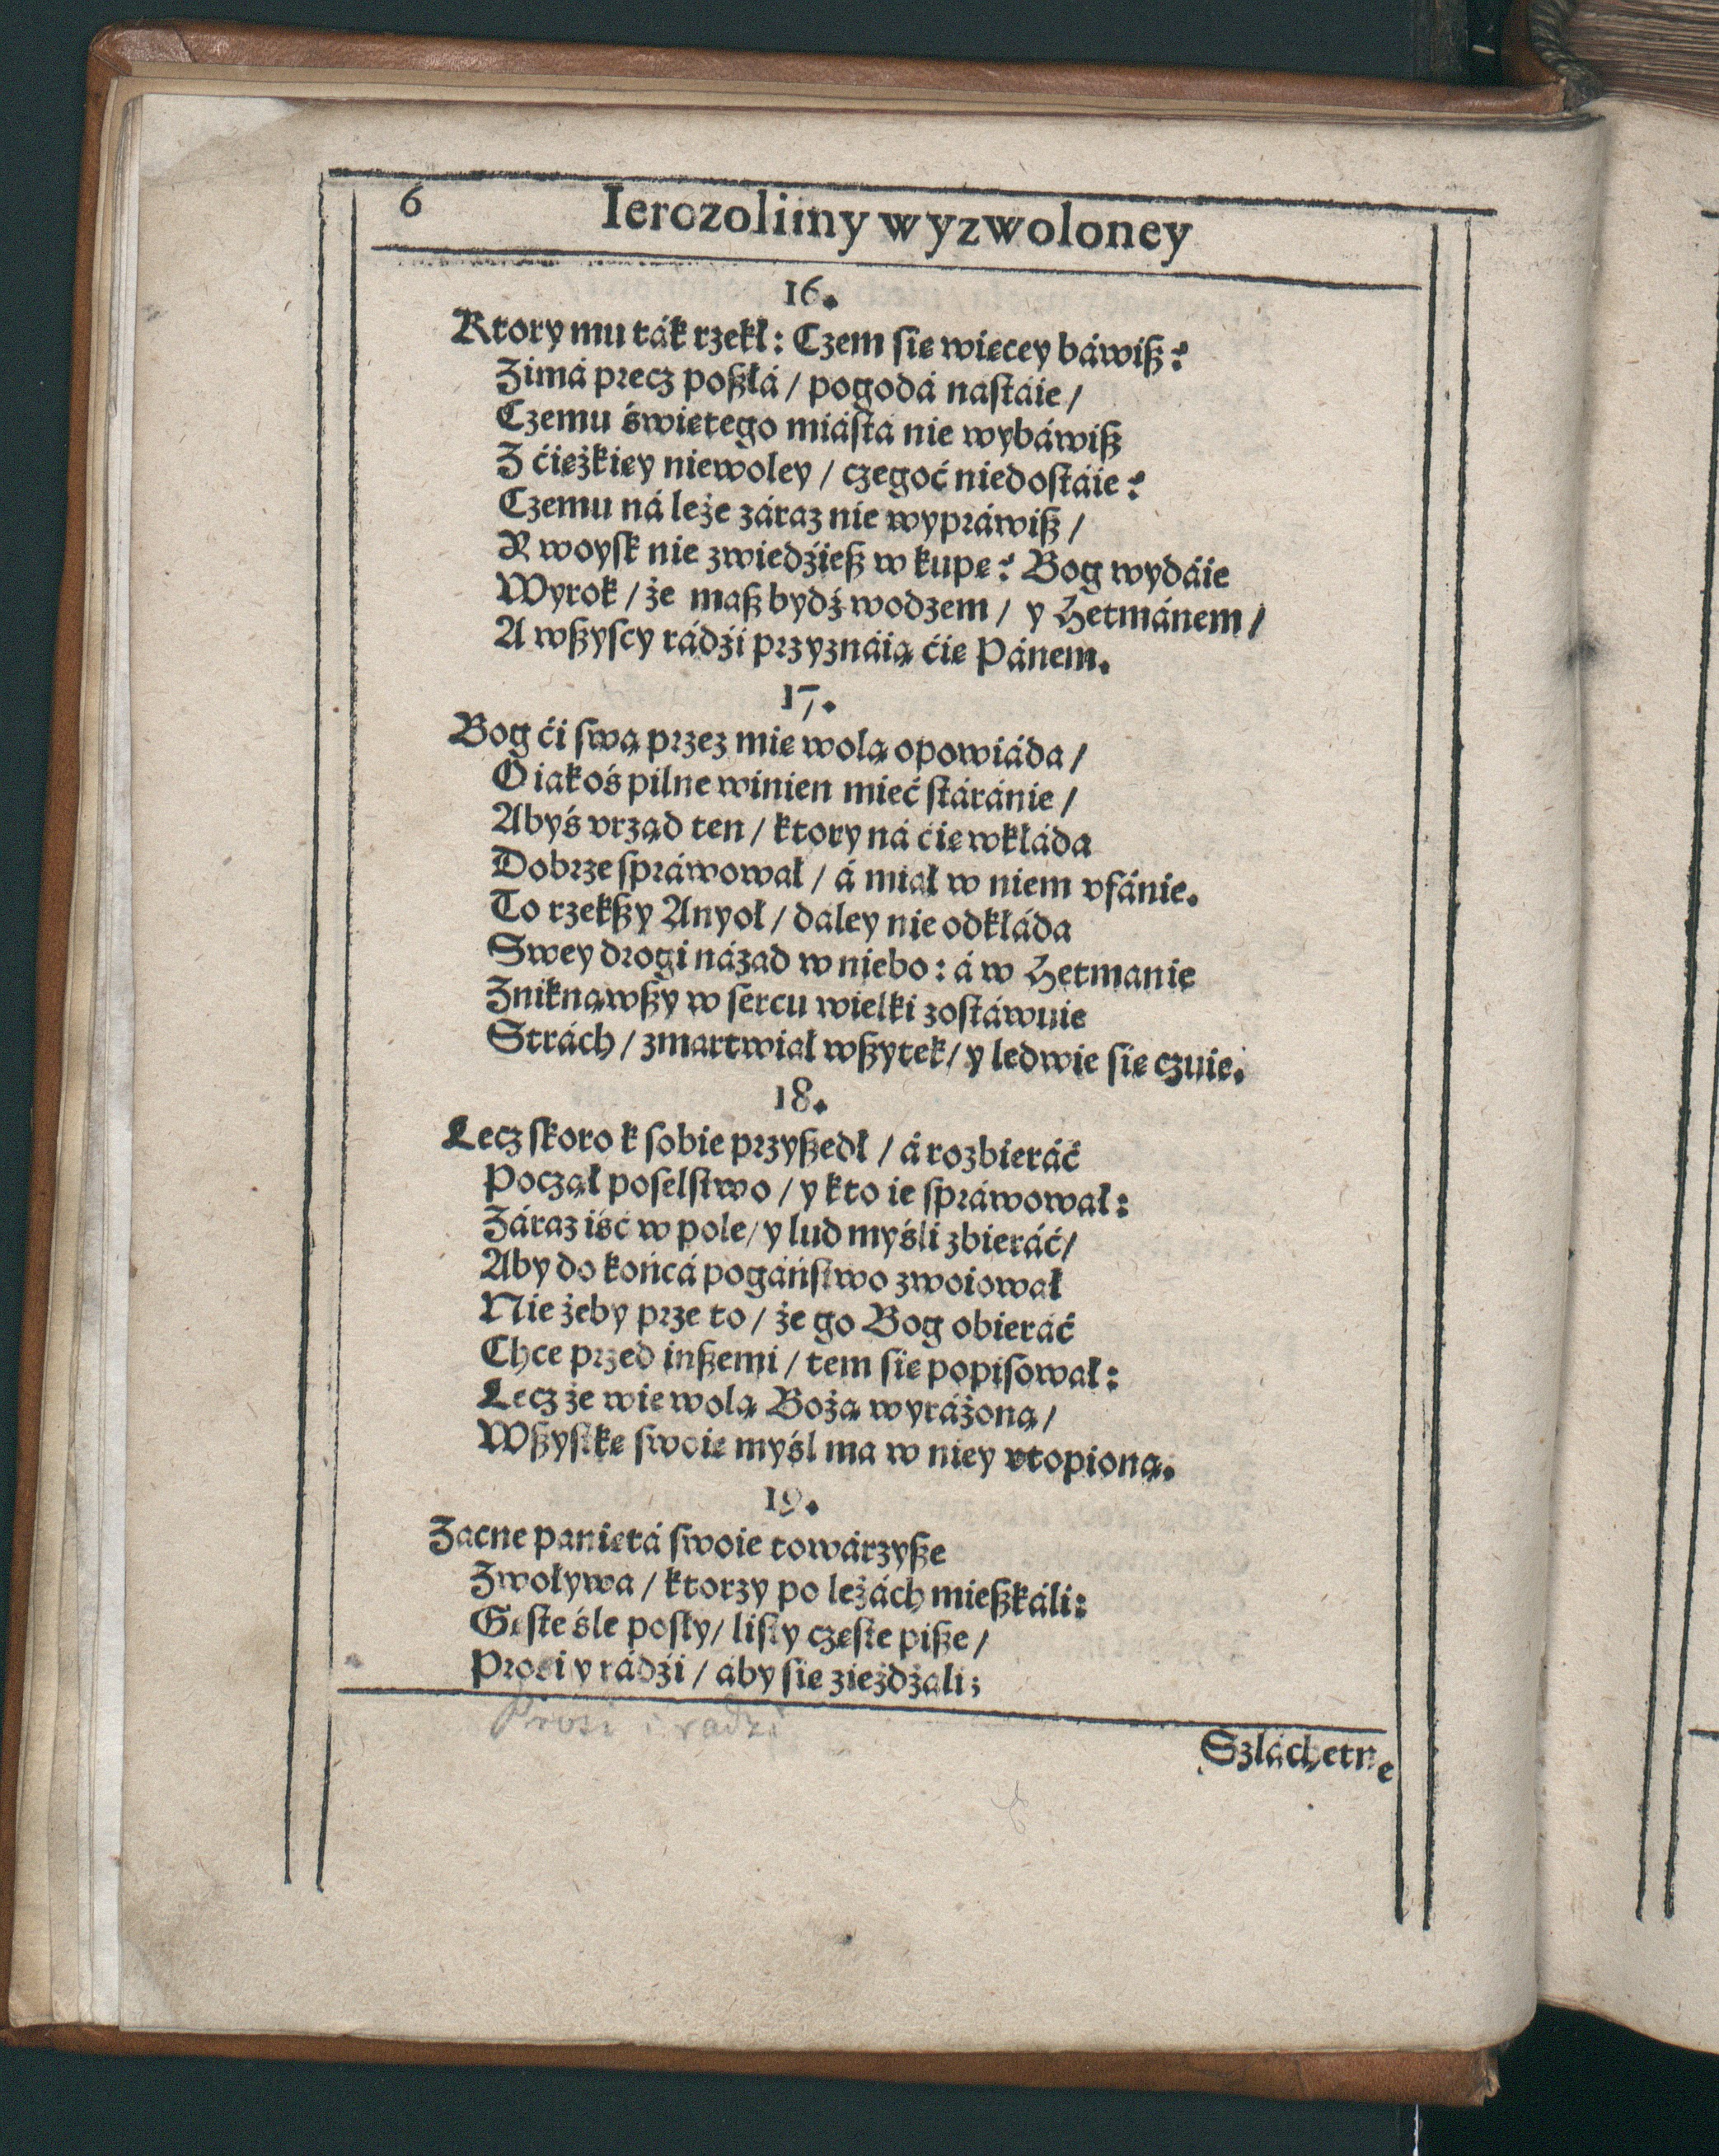 6 Ierozolimy wyzwoloney
16.
Ktory mu ták rzekł: Czem się więcey báwiß?
Zimá precz poßłá / pogodá nástáie /
Czemu świętego miástá nie wybáwiß
Z ćięszkiey niewoley / czegoć niedostáie?
Czemu ná leże záraz nie wypráwiß /
Y woysk nie zwiedźieß w kupę? Bog wydáie
Wyrok / że maß bydź wodzem / y Hetmánem /
A wßyscy rádźi przyznáią ćię Pánem.
17.
Bog ći swą przez mię wolą opowiáda /
O iakoś pilne winien mieć stáránie /
Abyś vrząd ten / ktory ná ćię wkłáda
Dobrze spráwował / á miał w niem vfánie.
To rzekßy Anyoł / daley nie odkłáda
Swey drogi názad w niebo: á w Hetmanie
Zniknąwßy w sercu wielki zostáwuie
Strách / zmartwiał wßytek / y ledwie się czuie.
18.
Lecz skoro k sobie przyßedł / á rozbieráć
Począł poselstwo / y kto ie spráwował:
Záraz iść w pole / y lud myśli zbieráć /
Aby do końcá pogáństwo zwoiował
Nie żeby prze to / że go Bog obieráć
Chce przed inßemi / tem się popisował:
Lecz że wie wolą Bożą wyráżoną /
Wßystkę swoię myśl ma w niey vtopioną.
19.
Zacne paniętá swoie towárzyße
Zwoływa / ktorzy po leżách mießkáli:
Gęste śle posły / listy częste piße /
Prosi y rádźi / áby się zieżdżali;
Prosi i radzi
Szláchetne